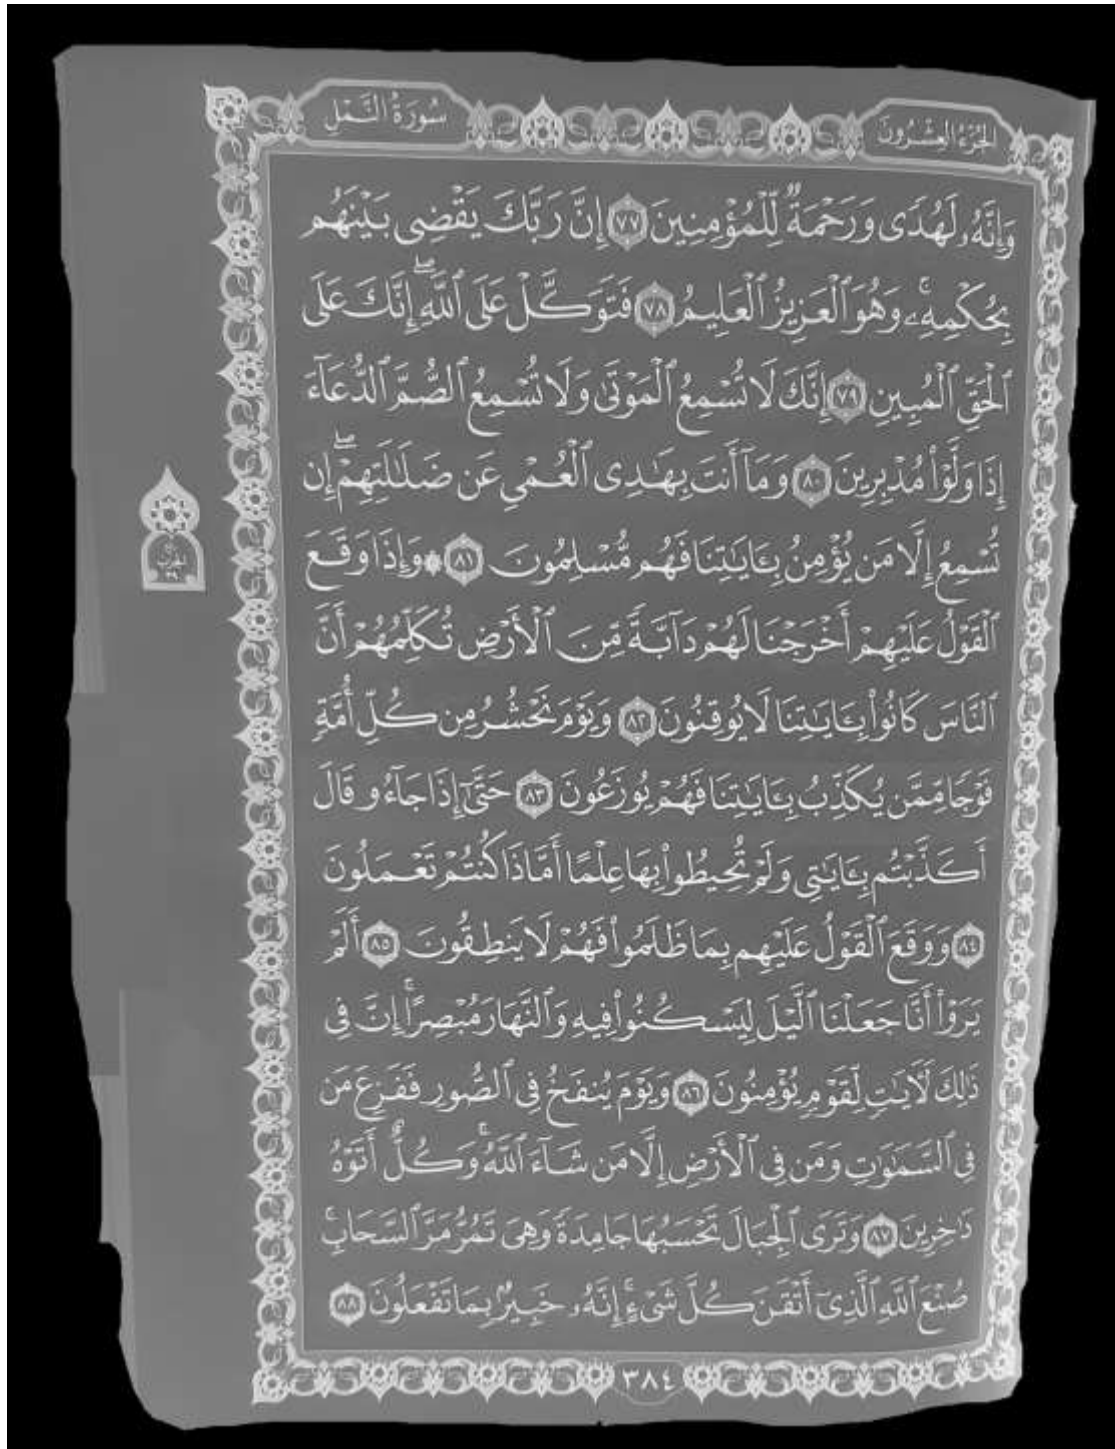 الجزء العشرون
سورة النمل
وَإِنَّهُۥ لَهُدًى وَرَحْمَةٌ لِّلْمُؤْمِنِينَ ٧٧ إِنَّ رَبَّكَ يَقْضِى بَيْنَهُم
بِحُكْمِهِۦۚ وَهُوَ ٱلْعَزِيزُ ٱلْعَلِيمُ ٧٨ فَتَوَكَّلْ عَلَى ٱللَّهِۖ إِنَّكَ عَلَى
ٱلْحَقِّ ٱلْمُبِينِ ٧٩ إِنَّكَ لَا تُسْمِعُ ٱلْمَوْتَىٰ وَلَا تُسْمِعُ ٱلصُّمَّ ٱلدُّعَآءَ
إِذَا وَلَّوْا۟ مُدْبِرِينَ ٨٠ وَمَآ أَنتَ بِهَٰدِى ٱلْعُمْىِ عَن ضَلَٰلَتِهِمْۖ إِن
تُسْمِعُ إِلَّا مَن يُؤْمِنُ بِـَٔايَٰتِنَا فَهُم مُّسْلِمُونَ ٨١ ۞ وَإِذَا وَقَعَ
ٱلْقَوْلُ عَلَيْهِمْ أَخْرَجْنَا لَهُمْ دَآبَّةً مِّنَ ٱلْأَرْضِ تُكَلِّمُهُمْ أَنَّ
ٱلنَّاسَ كَانُوا۟ بِـَٔايَٰتِنَا لَا يُوقِنُونَ ٨٢ وَيَوْمَ نَحْشُرُ مِن كُلِّ أُمَّةٍ
فَوْجًا مِّمَّن يُكَذِّبُ بِـَٔايَٰتِنَا فَهُمْ يُوزَعُونَ ٨٣ حَتَّىٰٓ إِذَا جَآءُو قَالَ
أَكَذَّبْتُم بِـَٔايَٰتِى وَلَمْ تُحِيطُوا۟ بِهَا عِلْمًا أَمَّاذَا كُنتُمْ تَعْمَلُونَ
٨٤ وَوَقَعَ ٱلْقَوْلُ عَلَيْهِم بِمَا ظَلَمُوا۟ فَهُمْ لَا يَنطِقُونَ ٨٥ أَلَمْ
يَرَوْا۟ أَنَّا جَعَلْنَا ٱلَّيْلَ لِيَسْكُنُوا۟ فِيهِ وَٱلنَّهَارَ مُبْصِرًاۚ إِنَّ فِى
ذَٰلِكَ لَءَايَٰتٍ لِّقَوْمٍ يُؤْمِنُونَ ٨٦ وَيَوْمَ يُنفَخُ فِى ٱلصُّورِ فَفَزِعَ مَن
فِى ٱلسَّمَٰوَٰتِ وَمَن فِى ٱلْأَرْضِ إِلَّا مَن شَآءَ ٱللَّهُۚ وَكُلٌّ أَتَوْهُ
دَٰخِرِينَ ٨٧ وَتَرَى ٱلْجِبَالَ تَحْسَبُهَا جَامِدَةً وَهِىَ تَمُرُّ مَرَّ ٱلسَّحَابِۚ
صُنْعَ ٱللَّهِ ٱلَّذِىٓ أَتْقَنَ كُلَّ شَىْءٍۚ إِنَّهُۥ خَبِيرٌۢ بِمَا تَفْعَلُونَ ٨٨
٣٨٤